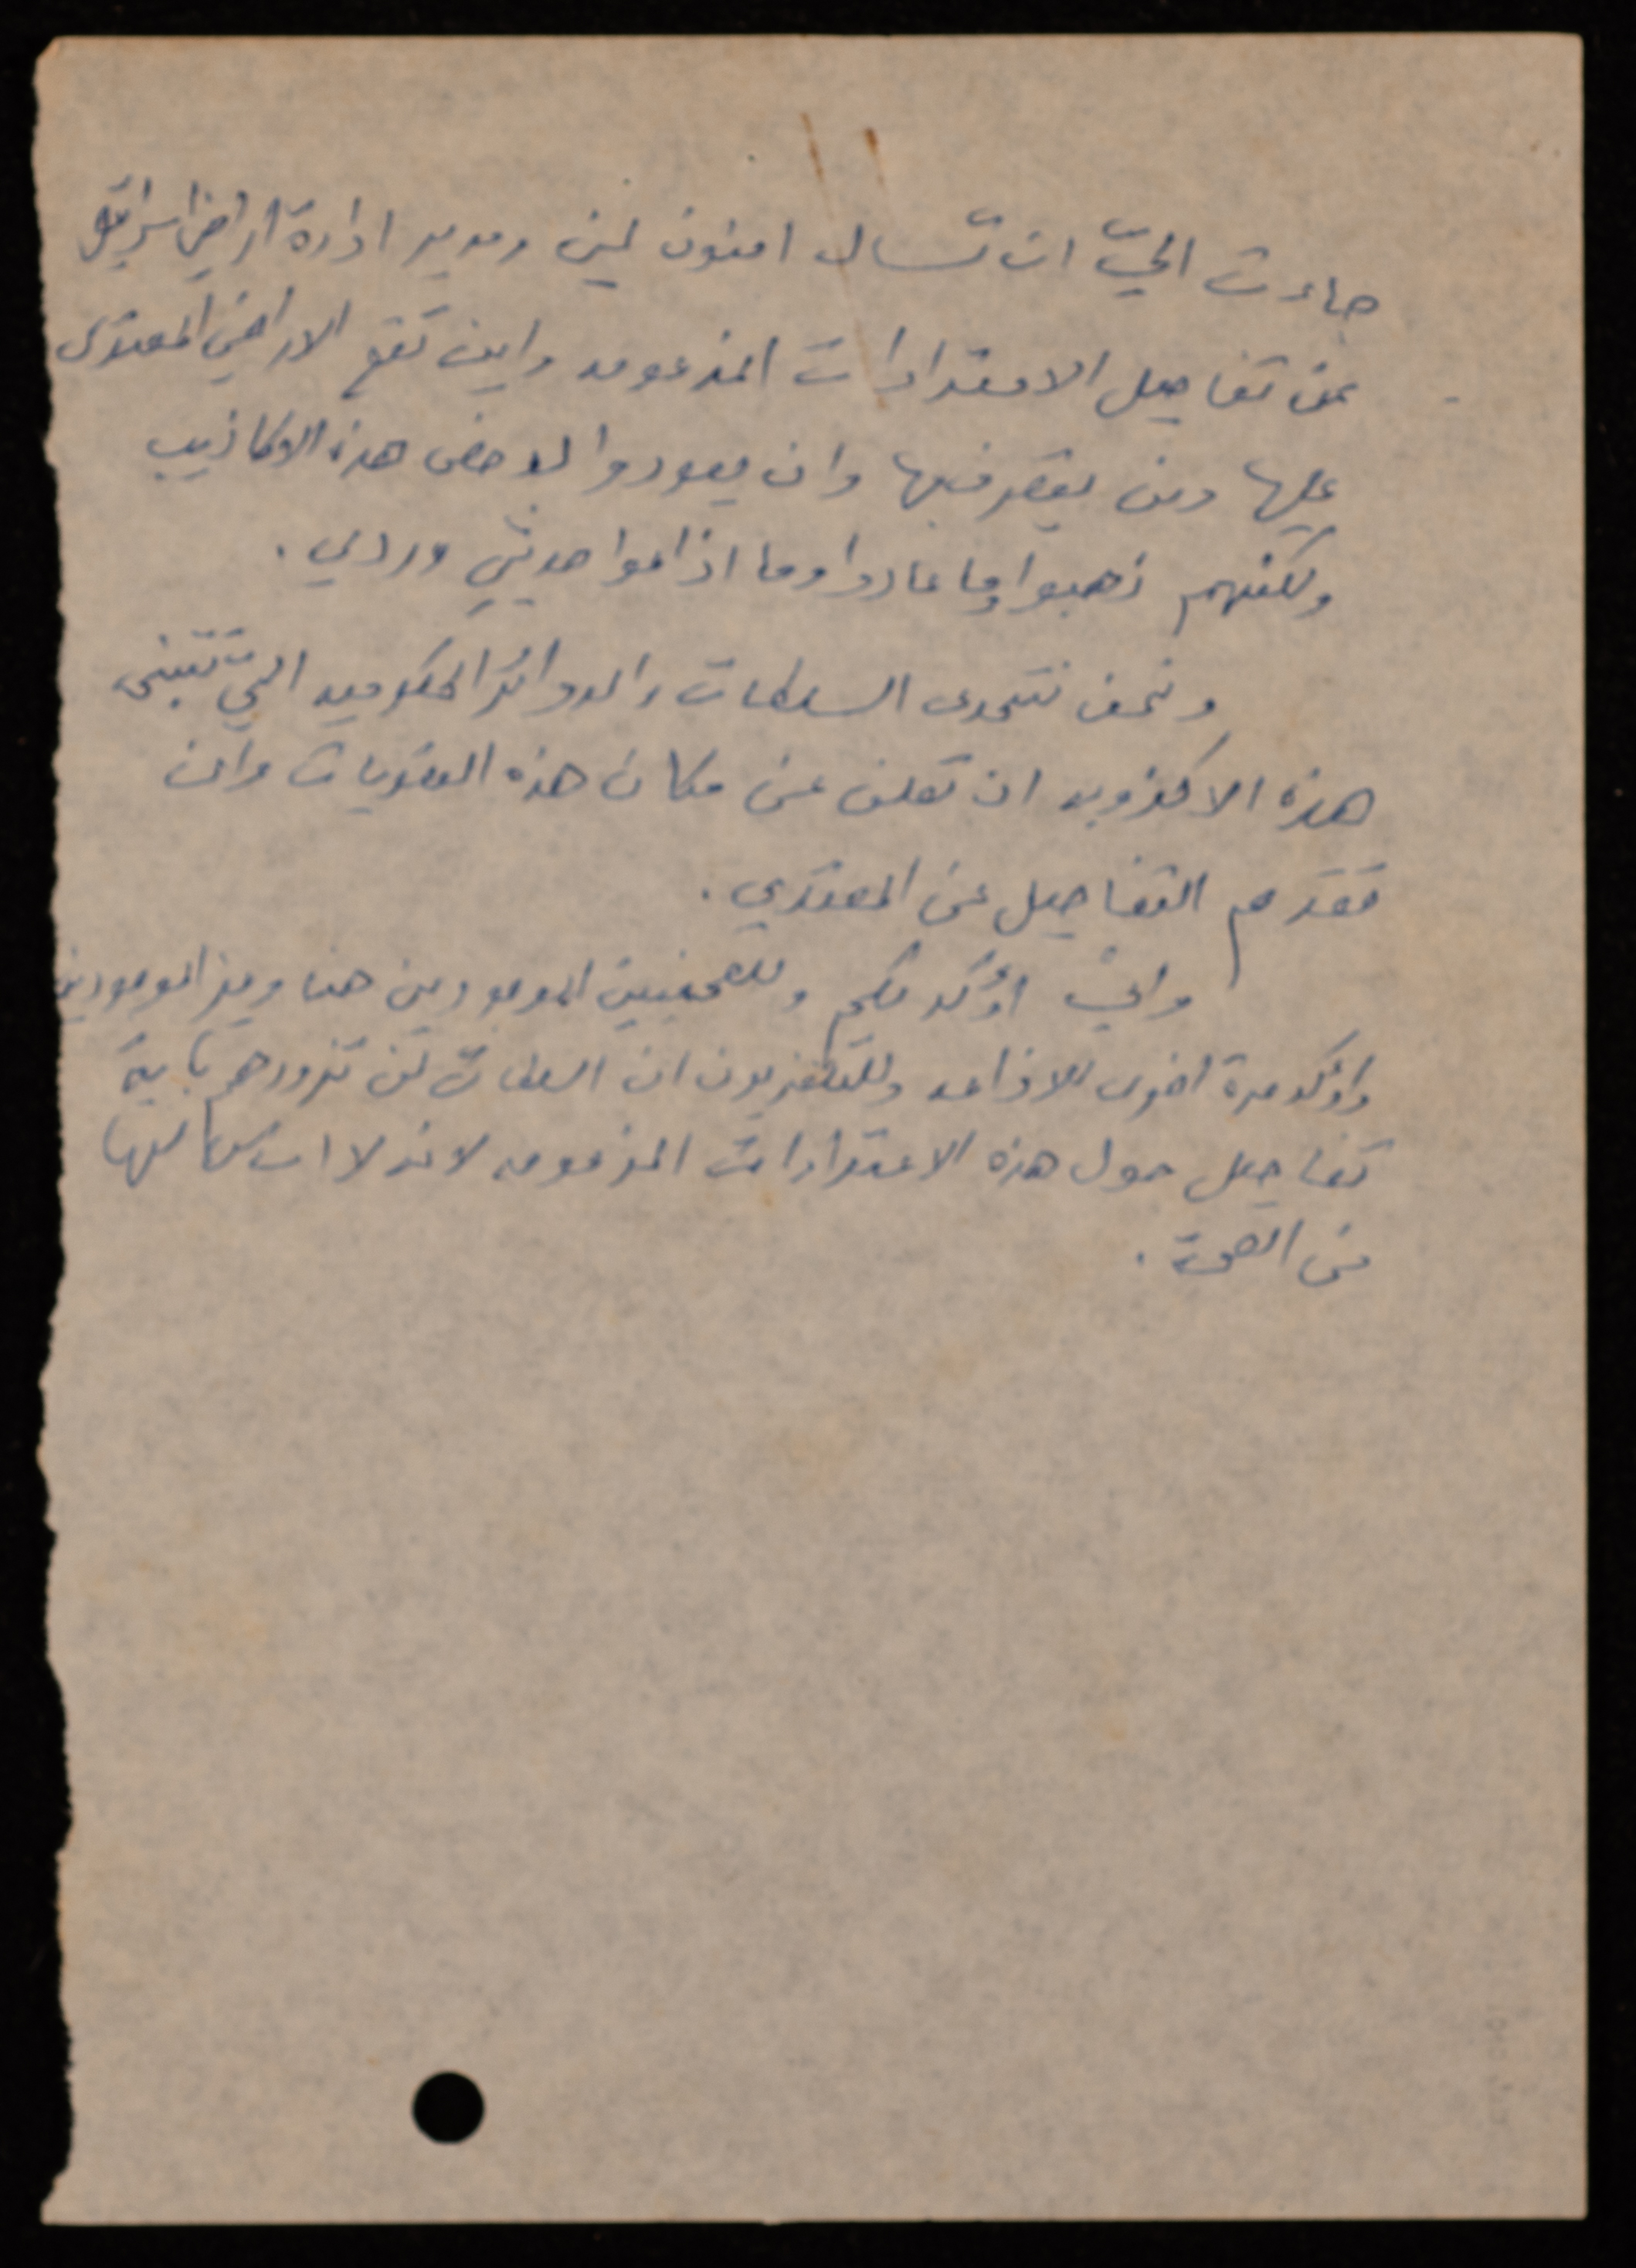 جاءت اليّ ان تسال امنون لين ومدير ادارة اراضي اسرائيل
عن تفاصيل الاعتداءات المزعومه واين تقع الاراضي المعتدى
عليها ومن يتصرف بها وان يعودوا لادحض هذه الاكاذيب
ولكنهم ذهبوا وما عادوا وما اذاعوا حديثي وردي .
ونحن نتحدى السلطات والدوائر الحكوميه التي تتبنى
هذه الاكذوبه ان تعلن عن مكان هذه التعديات وان
تقدم التفاصيل عن المعتدي .
واني اؤكد لكم وللصحفيين الموجودين هنا وغير الموجودين
واؤكد مرة اخرى للاذاعه وللتلفزيون ان السلطات لن تزودهم باية
تفاصيل حول هذه الاعتداءات المزعومه لانه لا اساس لها
من الصحة .